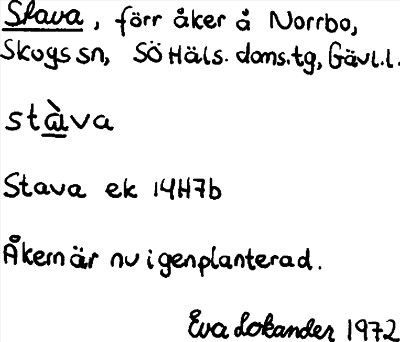 Stava, förr åker å Norrbo,
Skogs sn, SÖ Häls. doms.tg, Gävl.l.
stàva
Stava ek 14H7b
Åkern är nu igenplanterad.
Eva Lokander 1972